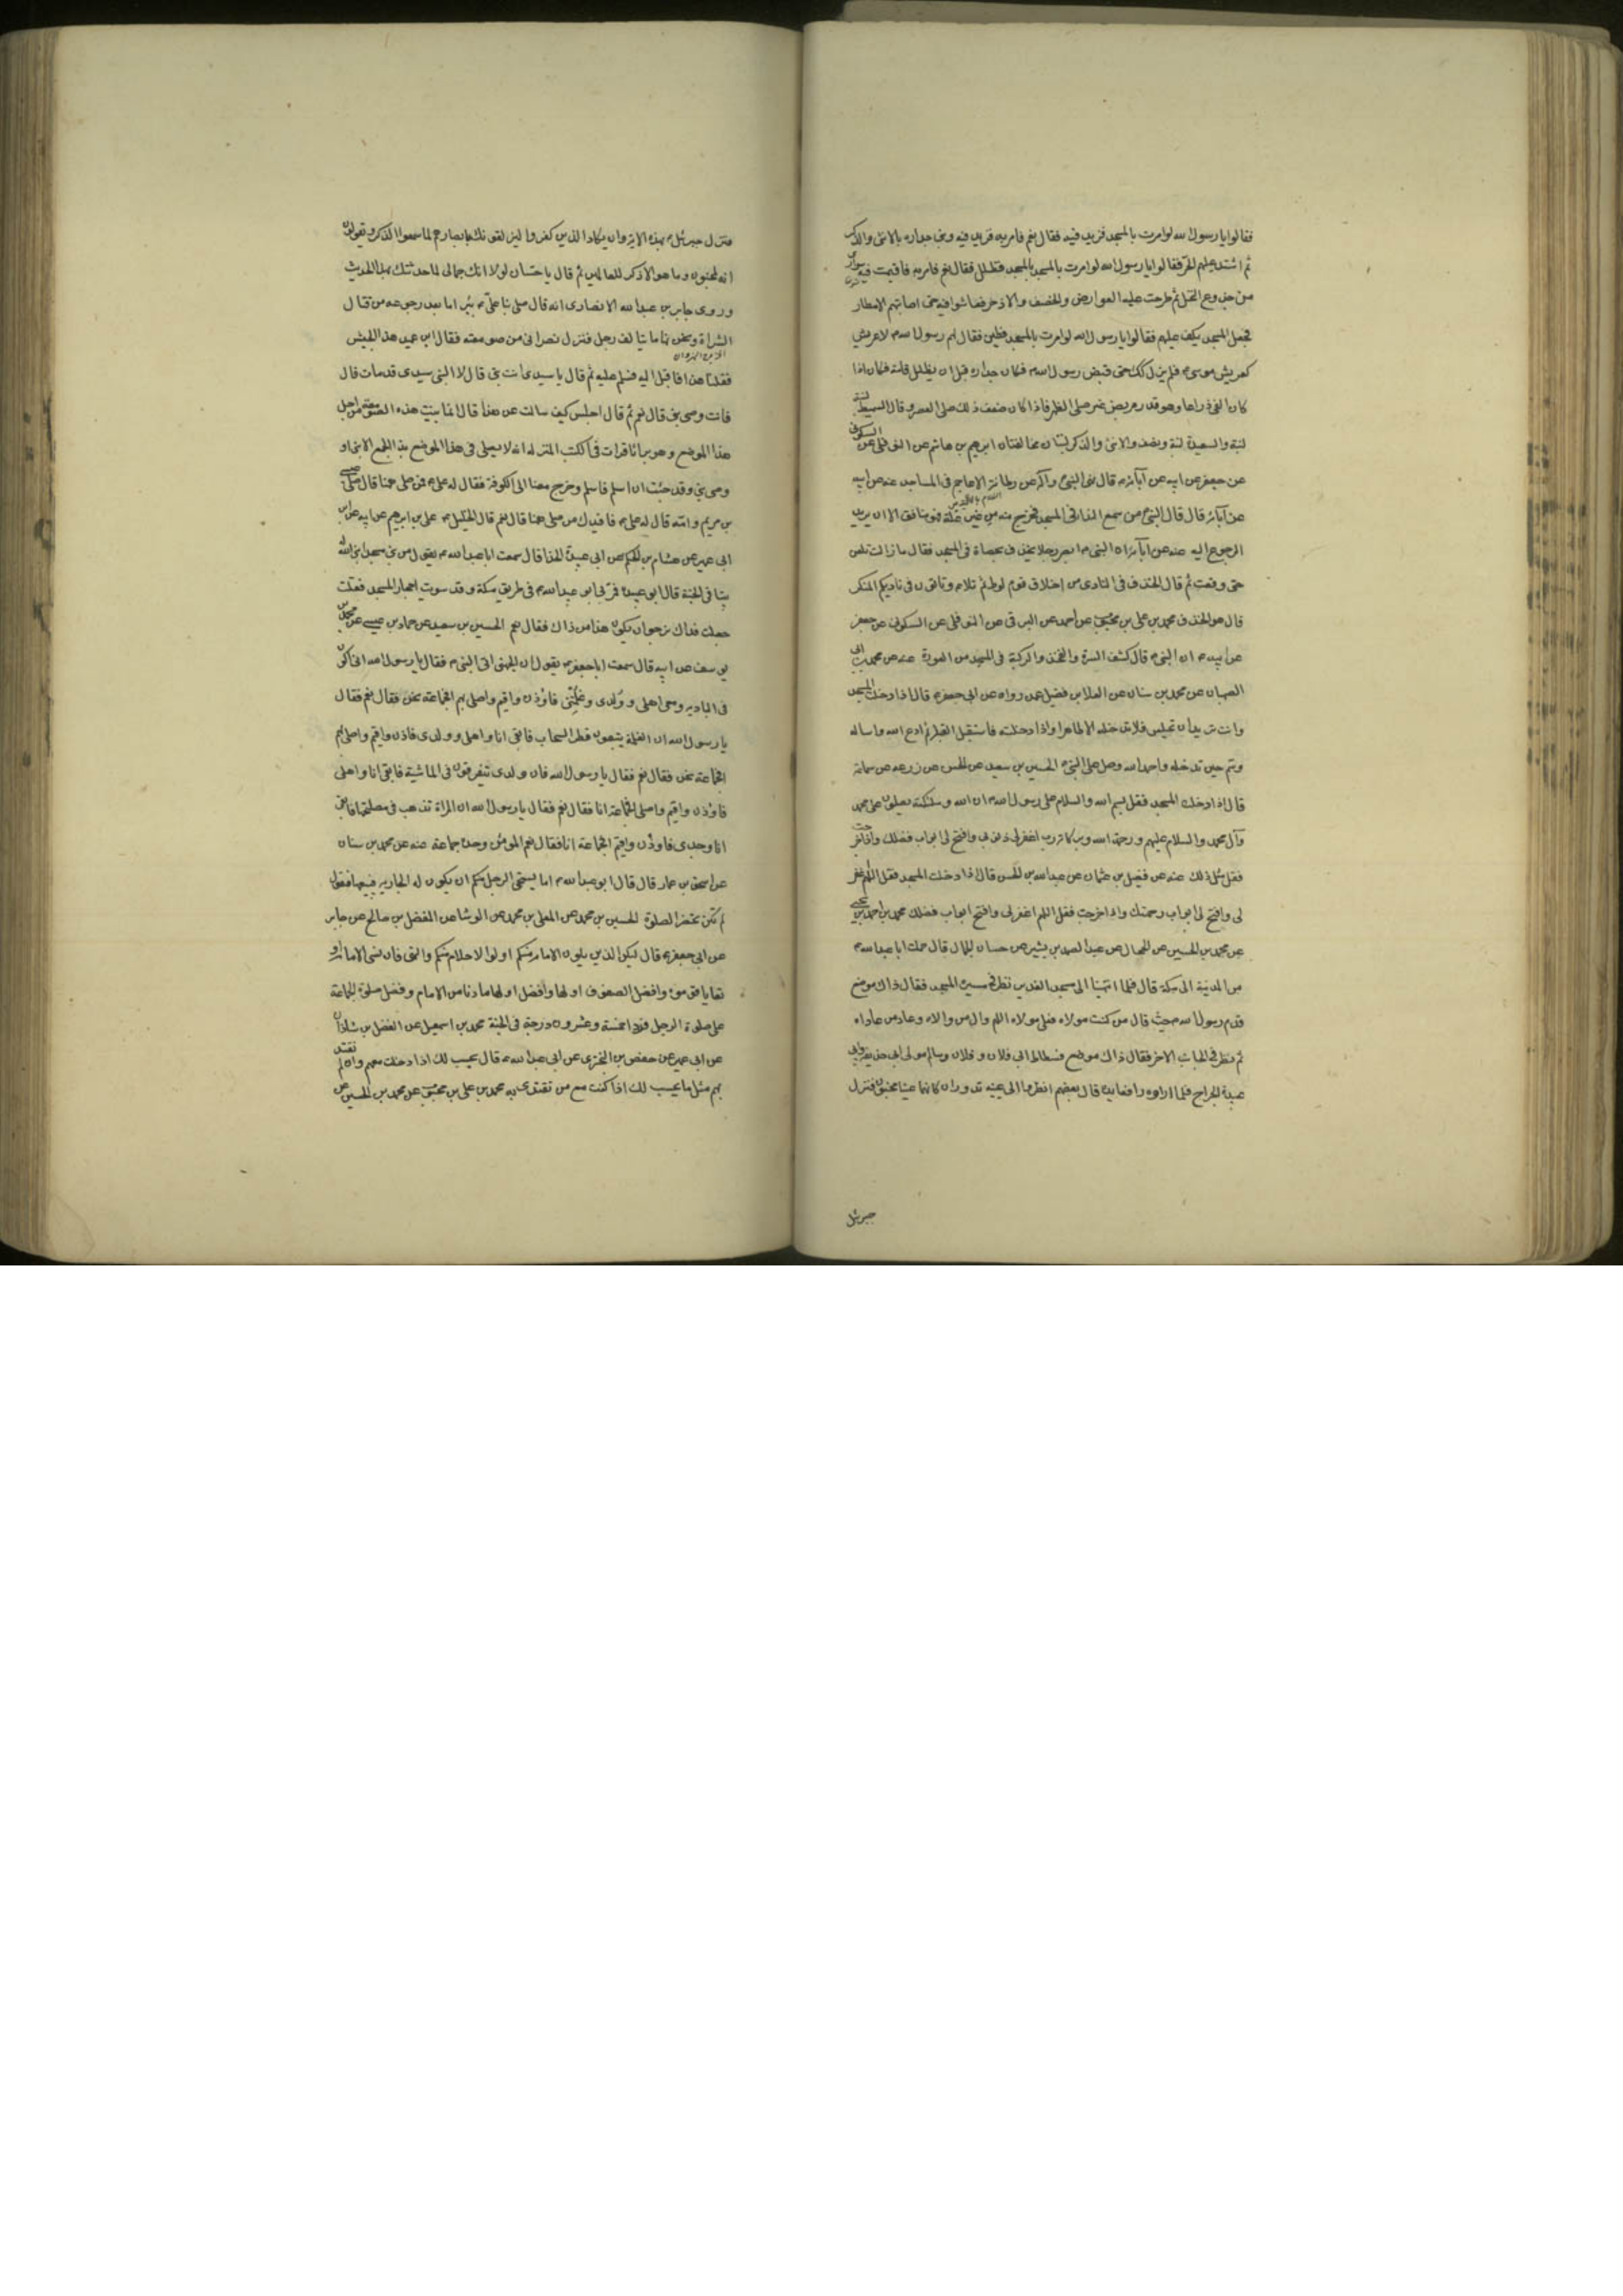 فقالوا يا رسول الله لو امرت بالمسجد فزيد فيه فقال نعم فامر به فزيد فيه وبنى جداره بالانثى والذكر
ثم اشتد عليهم الحر فقالوا يا رسول الله لو امرت بالمسجد فظلل فقال نعم فامر به فاقيمت فيه سواري
من جذوع النخل ثم طرحت عليه العوارض والخصف والاذخر فعاشوا فيه حتى اصابتهم الامطار
فجعل المسجد يكف عليهم فقالوا يا رسول الله لو امرت بالمسجد فطين فقال لهم رسول الله لا عريش
كعريش موسى فلم يزل كذلك حتى قبض رسول الله فكان جداره قبل ان يظلل قامة فكان اذا
كان الفئ ذراعا وهو قدر مربض عنز صلى الظهر فاذا كان ضعف ذلك صلى العصر وقال السميط لبنة
لبنة والسعيدة لبنة ونصف والانثى والذكر لبنتان مخالفتان ابرهيم بن هاشم عن النوفلي عن السكوني
عن جعفر عن ابيه عن آبائه قال نهى النبي وآله عن رطانة الاعاجم في المساجد عنه عن ابيه
عن آبائه قال قال النبي من سمع الندا في المسجد فخرج منه من غير علة فهو منافق الا ان يريد
الرجوع اليه عنه عن آبائه ان النبي ابصر رجلا يخذف بحصاة في المسجد فقال ما زالت تلعن
حتى وقعت ثم قال الخذف في النادى من اخلاق قوم لوط ثم تلا وتاتون في ناديكم المنكر
قال هو الخذف محمد بن علي بن محبوب عن احمد عن البرقي عن النوفلي عن السكوني عن جعفر
عن ابيه ان النبي قال كشف السرة والفخذ والركبة في المسجد من العورة عنه عن محمد بن ابي
الصهبان عن محمد بن سنان عن العلا بن فضيل عمن رواه عن ابي جعفر قال اذا دخلت المسجد
وانت تريد ان تجلس فلا تدخله الا طاهرا واذا دخلته فاستقبل القبلة ثم ادع الله واساله
وسم حين تدخله واحمد الله وصل على النبي الحسين بن سعيد عن الحسن عن زرعه عن سماعة
قال اذا دخلت المسجد فقل بسم الله والسلام على رسول الله ان الله وملئكته يصلون على محمد
وآل محمد والسلام عليهم ورحمة الله وبركاته رب اغفر لي ذنوبي وافتح لي ابواب فضلك واذا خرجت
فقل مثل ذلك عنه عن فضيل بن عثمان عن عبد الله بن الحسن قال اذا دخلت المسجد فقل اللهم اغفر
لي وافتح لي ابواب رحمتك واذا خرجت فقل اللهم اغفر لي وافتح ابواب فضلك محمد بن احمد بن يحيى
عن محمد بن الحسين عن الحجال عن عبد الصمد بن بشير عن حسان الجمال قال حملت ابا عبد الله
من المدينة الى مكة قال فلما انتهينا الى مسجد الغدير نظر في ميسرة المسجد فقال ذاك موضع
قدم رسول الله حيث قال من كنت مولاه فعلي مولاه اللهم وال من والاه وعاد من عاداه
ثم نظر في الجانب الاخر فقال ذاك موضع فسطاط ابي فلان و فلان وسالم مولى ابي حذيفة وابي
عبيدة الجراح فلما اراوه رافعا يده قال بعضهم انظروا الى عينيه تدوران كانهما عينا مجنون فنزل
جبرئيل
فنزل جبرئيل بهذه الاية وان يكاد الذين كفروا ليزلقونك بابصارهم لما سمعوا الذكر ويقولون
انه لمجنون وما هو الا ذكر للعالمين ثم قال يا حسان لولا انك جمالي لما حدثتك بهذا الحديث
وروى جابر بن عبد الله الانصارى انه قال صلى بنا علي ببراثا بعد رجوعه من قتال
الشراة ونحن زهاء مائة الف رجل فنزل نصراني من صومعته فقال اين عميد هذا الجيش
فقلنا هذا فاقبل اليه فسلم عليه ثم قال يا سيدي انت نبي قال لا النبي سيدى قد مات قال
فانت وصي نبي قال نعم ثم قال اجلس كيف سالت عن هذا قال انا بنيت هذه الصومعة من اجل
هذا الموضع وهو براثا قرات في الكتب المنزلة انه لا يصلى في هذا الموضع بذا الجمع الا نبي او
وصي نبي وقد جئت ان اسلم فاسلم وخرج معنا الى الكوفة فقال له علي فمن صلى هنا قال صلى عيسى
بن مريم وامه قال له علي فافيدك من صلى هنا قال نعم قال الخليل علي بن ابرهيم عن ابيه عن ابن
ابي عمير عن هشام بن الحكم عن ابي عبيدة الحذا قال سمعت ابا عبد الله يقول من بنى مسجدا بنى الله له
بيتا في الجنة قال ابو عبيدة فمر بي ابو عبد الله في طريق مكة وقد سويت احجار المسجد فقلت
جعلت فداك نرجوا ان يكون هذا من ذاك فقال نعم الحسين بن سعيد عن حماد بن عيسى عن محمد بن
يوسف عن ابيه قال سمعت ابا جعفر يقول ان الجهني اتى النبي فقال يا رسول الله اني اكون
في البادية ومعى اهلى وولدى وغلمتي فاؤذن واقيم واصلى بهم افجماعة نحن فقال نعم فقال
يا رسول الله ان الغلمة يتبعون قطر السحاب فابقى انا واهلى وولدى فاذن واقيم واصلى بهم
افجماعة نحن فقال نعم فقال يا رسول الله فان ولدى يتفرقون في الماشية فابقى انا واهلى
فاؤذن واقيم واصلى افجماعة انا فقال نعم فقال يا رسول الله ان المراة تذهب في مصلحتها فابقى
انا وحدى فاوذن واقيم افجماعة انا فقال نعم المومن وحده جماعة عنه عن محمد بن سنان
عن اسحق بن عمار قال قال ابو عبد الله اما يستحي الرجل منكم ان يكون له الجارية فيبيعها فتقول
لم يكن يحضر الصلوة الحسين بن محمد عن المعلى بن محمد عن الوشا عن المفضل بن صالح عن جابر
عن ابي جعفر قال ليكن الذين يلون الامام منكم اولوا الاحلام منكم والنهى فان نسى الامام او
تعايا قوموه وافضل الصفوف اولها وافضل اولها ما دنا من الامام وفضل صلوة الجماعة
على صلوة الرجل فردا خمسة وعشرون درجة في الجنة محمد بن اسمعيل عن الفضل بن شاذان
عن ابي عمير عن حفص بن البختري عن ابي عبد الله قال يحسب لك اذا دخلت معهم وان لم تقتد
بهم مثل ما يحسب لك اذا كنت مع من تقتدى به محمد بن علي بن محبوب عن محمد بن الحسين عن